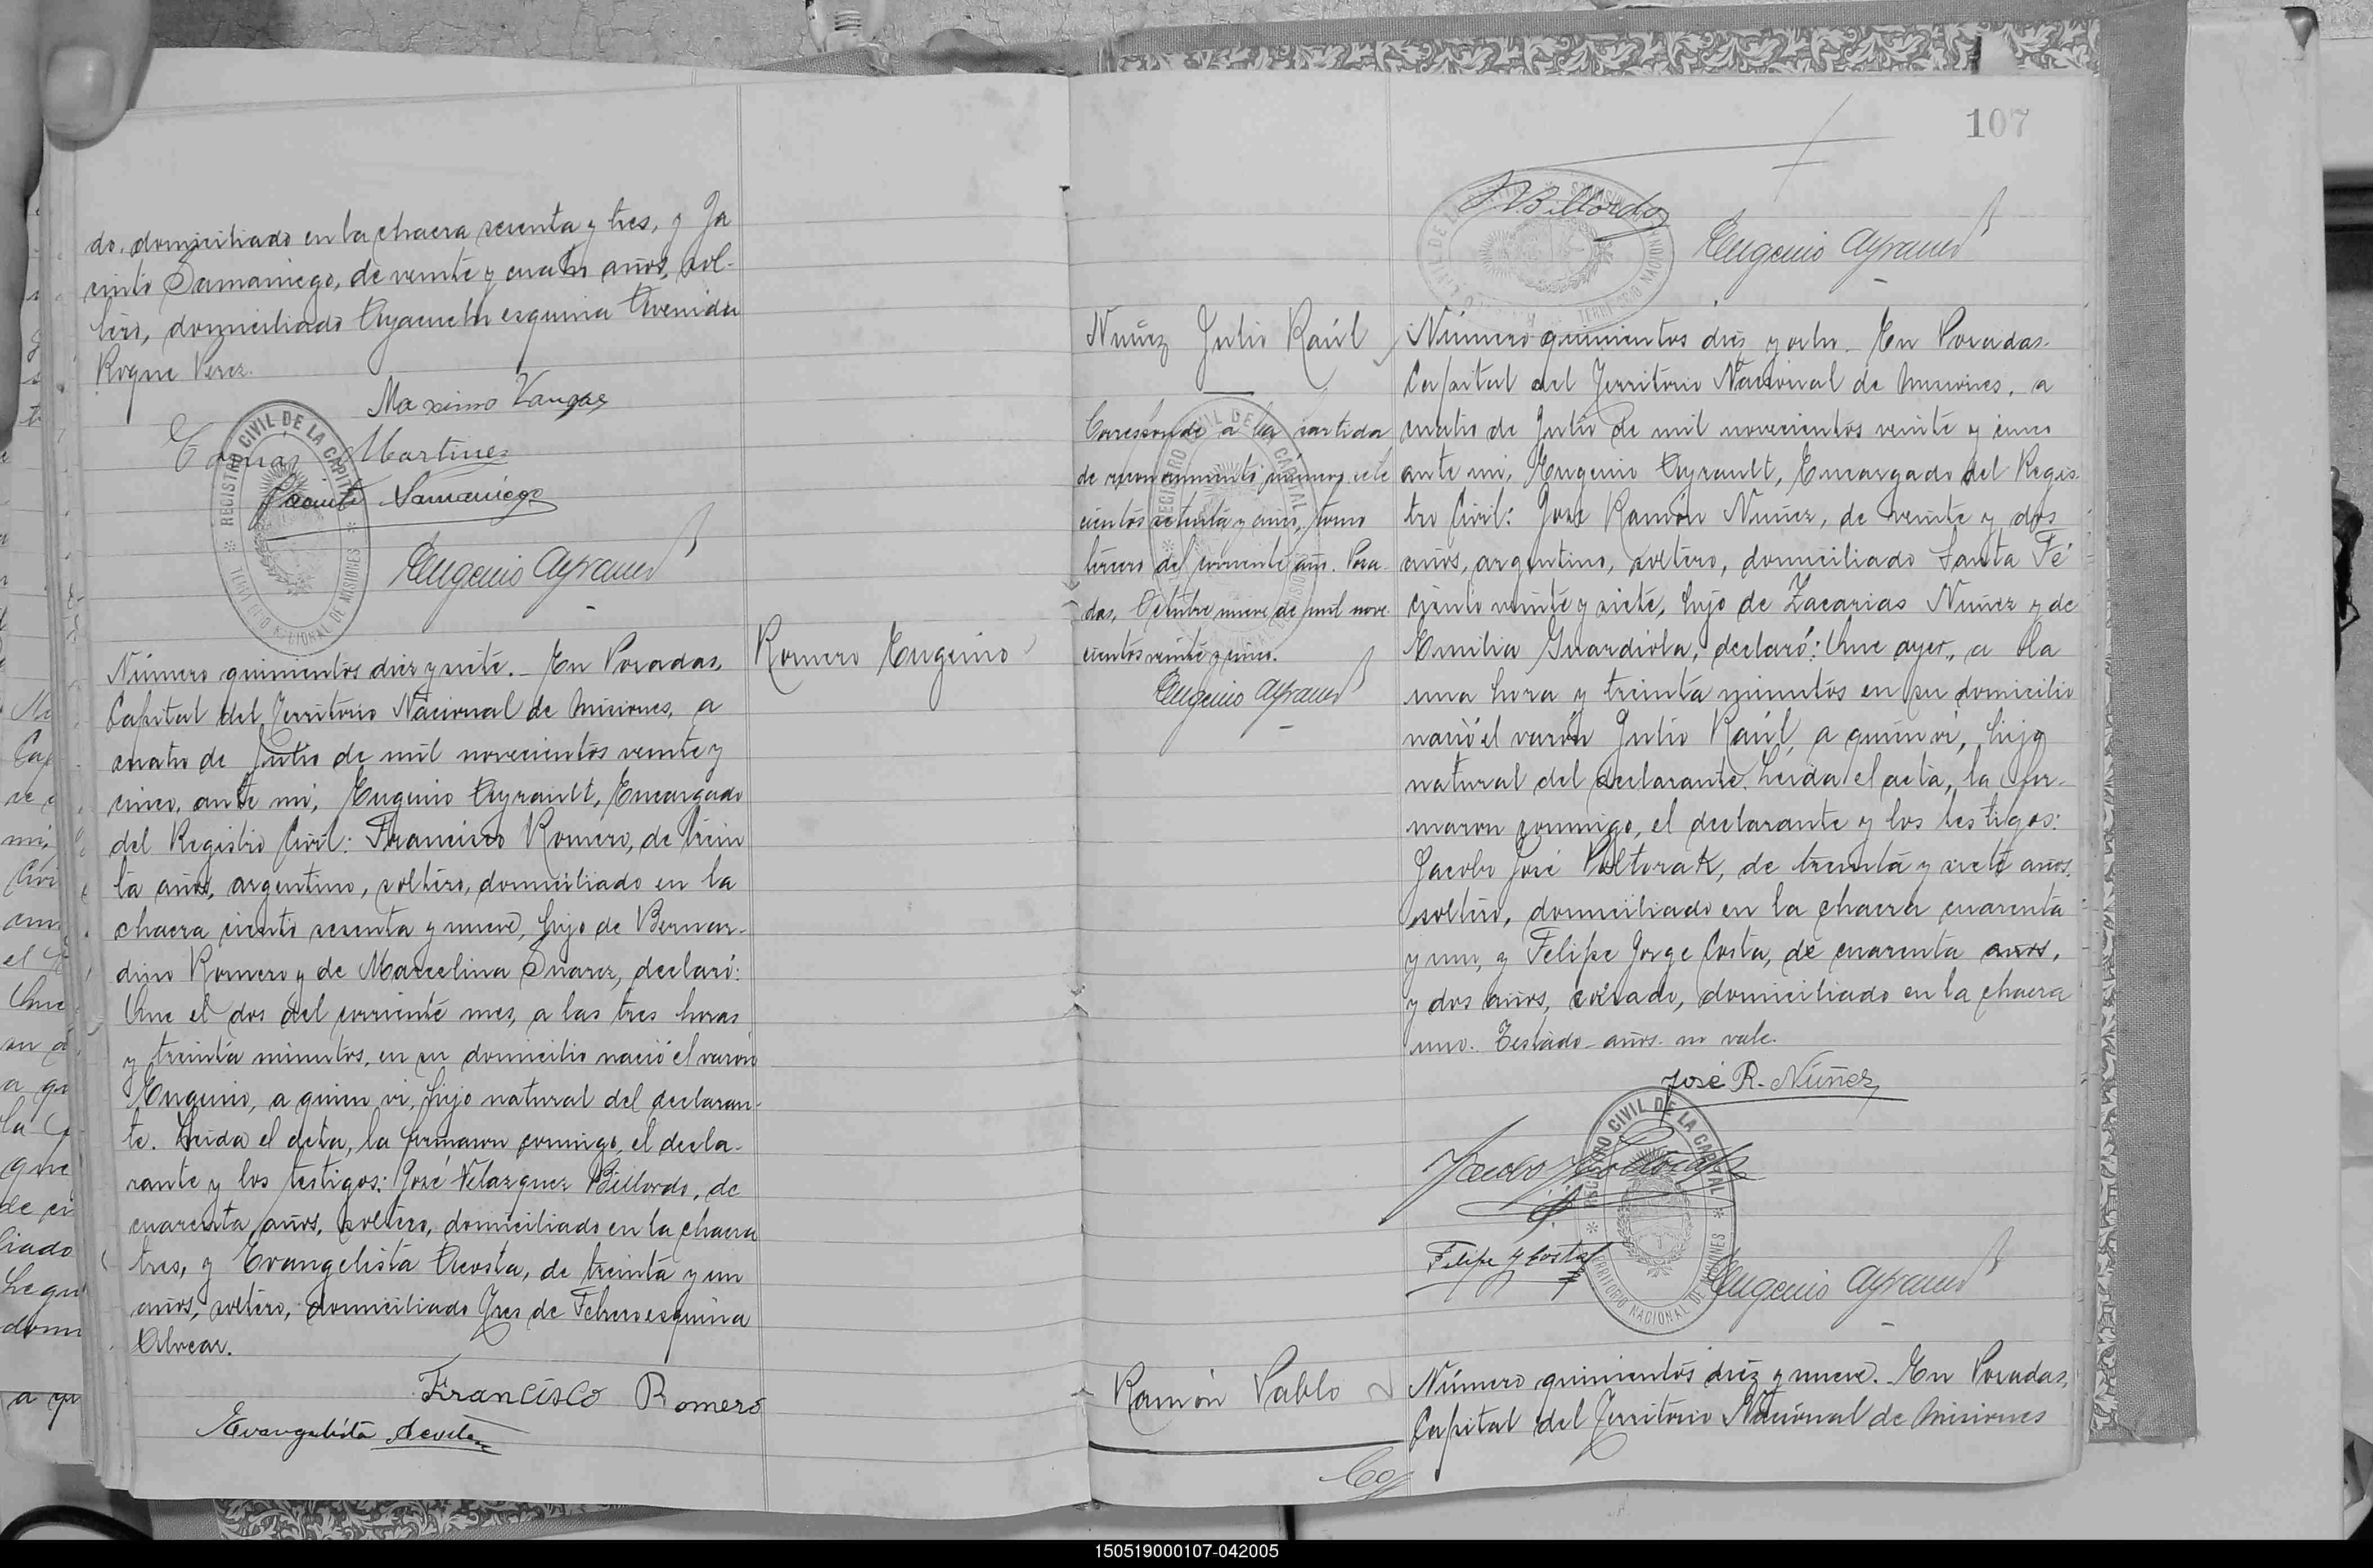 do, domiciliado en la chacra sesenta y tres, y Ja
cinto Samaniego, de veinte y cuatro años, sol-
tero, domiciliado Ayacucho esquina Avenida
Roque Perez.
Maximo Vargas
Tomas Martinez
Jacinto Samaniego
REGISTRO CIVIL DE LA CAPITAL
TERRITORIO NACIONAL DE MISIONES
Eugenio Ayrault
Número quinientos diez y siete.- En Posadas,
Capital del Territorio Nacional de Misiones, a
cuatro de Julio de mil novecientos veinte y
cinco, ante mi, Eugenio Ayrault, Encargado
del Registro Civil: Francisco Romero, de trein
ta años, argentino, soltero, domiciliado en la
chacra ciento sesenta y nueve, hijo de Bernar-
dino Romero y de Marcelina Suarez, declaró:
Que el dos del corriente mes, a las tres horas
y treinta minutos, en su domicilio nació el varón
Eugenio, a quien vi, hijo natural del declaran-
te. Leida el acta, la firmaron conmigo, el decla-
rante y los testigos: José Velazquez Billordo, de
cuarenta años, soltero, domiciliado en la chacra
tres, y Evangelista Acosta, de treinta y un
años, soltero, domiciliado Tres de Febrero esquina
Alvear.
Francisco Romero
Evangelista Acosta
Romero Eugenio
107
Billordo
Eugenio Ayrault
Nuñez Julio Raúl
Corresponde a la partida
de reconocimiento número siete
cientos setenta y cinco, tomo
tercero del corriente año. Posa-
das, Octubre nueve de mil nove-
cientos veinte y cinco.
Eugenio Ayrault
Número quinientos diez y ocho.- En Posadas
Capital del Territorio Nacional de Misiones, a
cuatro de Julio de mil novecientos veinte y cinco
ante mi, Eugenio Ayrault, Encargado del Regis-
tro Civil: José Ramón Nuñez, de veinte y dos
años, argentino, soltero, domiciliado Santa Fé
ciento veinte y siete, hijo de Zacarias Nuñez y de
Emilia Guardiola, declaró: Que ayer, a la
una hora y treinta minutos en su domicilio
nació el varón Julio Raúl, a quien vi, hijo
natural del declarante. Leida el acta, la fir-
maron conmigo, el declarante y los testigos:
Jacobo José Poltorak, de treinta y siete años,
soltero, domiciliado en la chacra cuarenta
y uno, y Felipe Jorge Costa, de cuarenta años,
y dos años, casado, domiciliado en la chacra
uno. Testado- años- no vale.
José R. Núñez
Jacobo J Poltorak
REGISTRO CIVIL DE LA CAPITAL
TERRITORIO NACIONAL DE MISIONES
Felipe J Costa
Eugenio Ayrault
Ramón Pablo
Número quinientos diez y nueve. En Posadas,
Capital del Territorio Nacional de Misiones
150519000107-042005